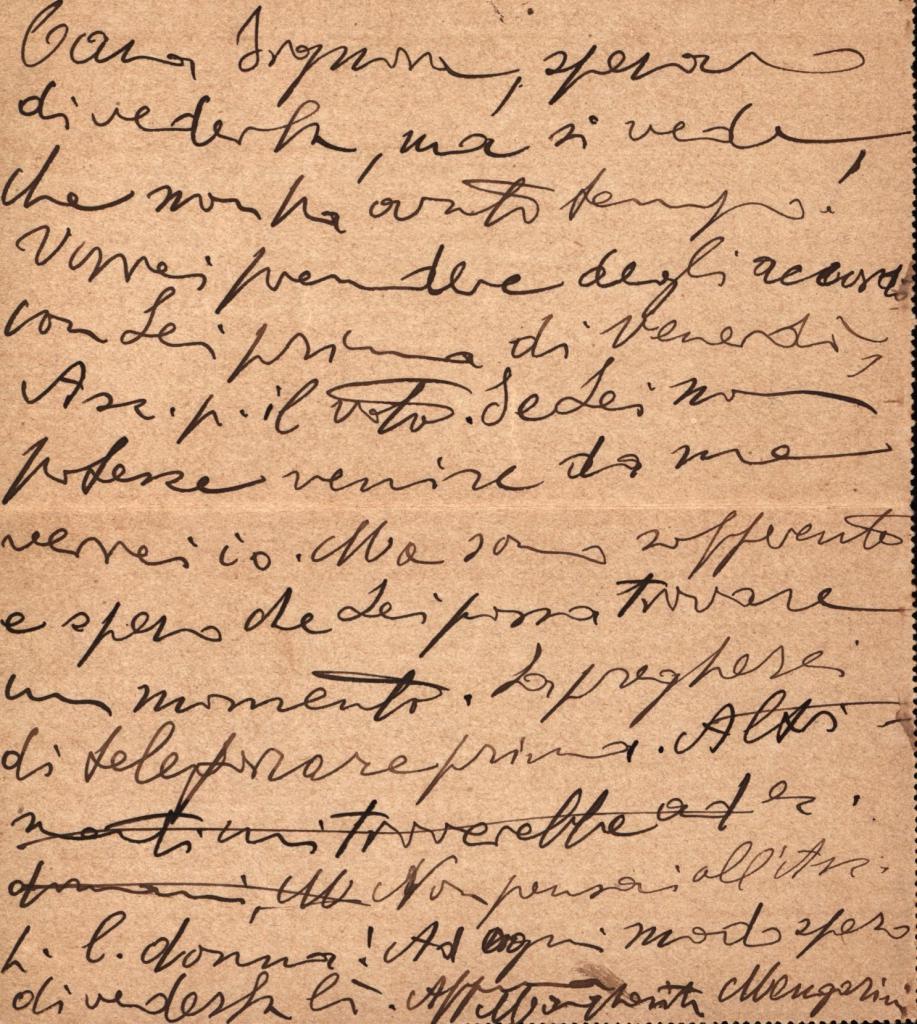 Cara Signora, speravo
di vederla, ma si vede
che non ha avuto tempo!
Vorrei prendere degli accordi
con Lei prima di Venerdì,
Ass. p. il voto. Se Lei non
potesse venire da me
verrei io. Ma sono sofferente
e spero che Lei possa trovare
un momento. La pregherei
di telefonare prima. Altri-
menti mi troverebbe ad es.
domani, M Non pensai all'Ass.
p. l. donna! Ad ogni modo spero
di vederla lì. Aff Margherita Mengarini